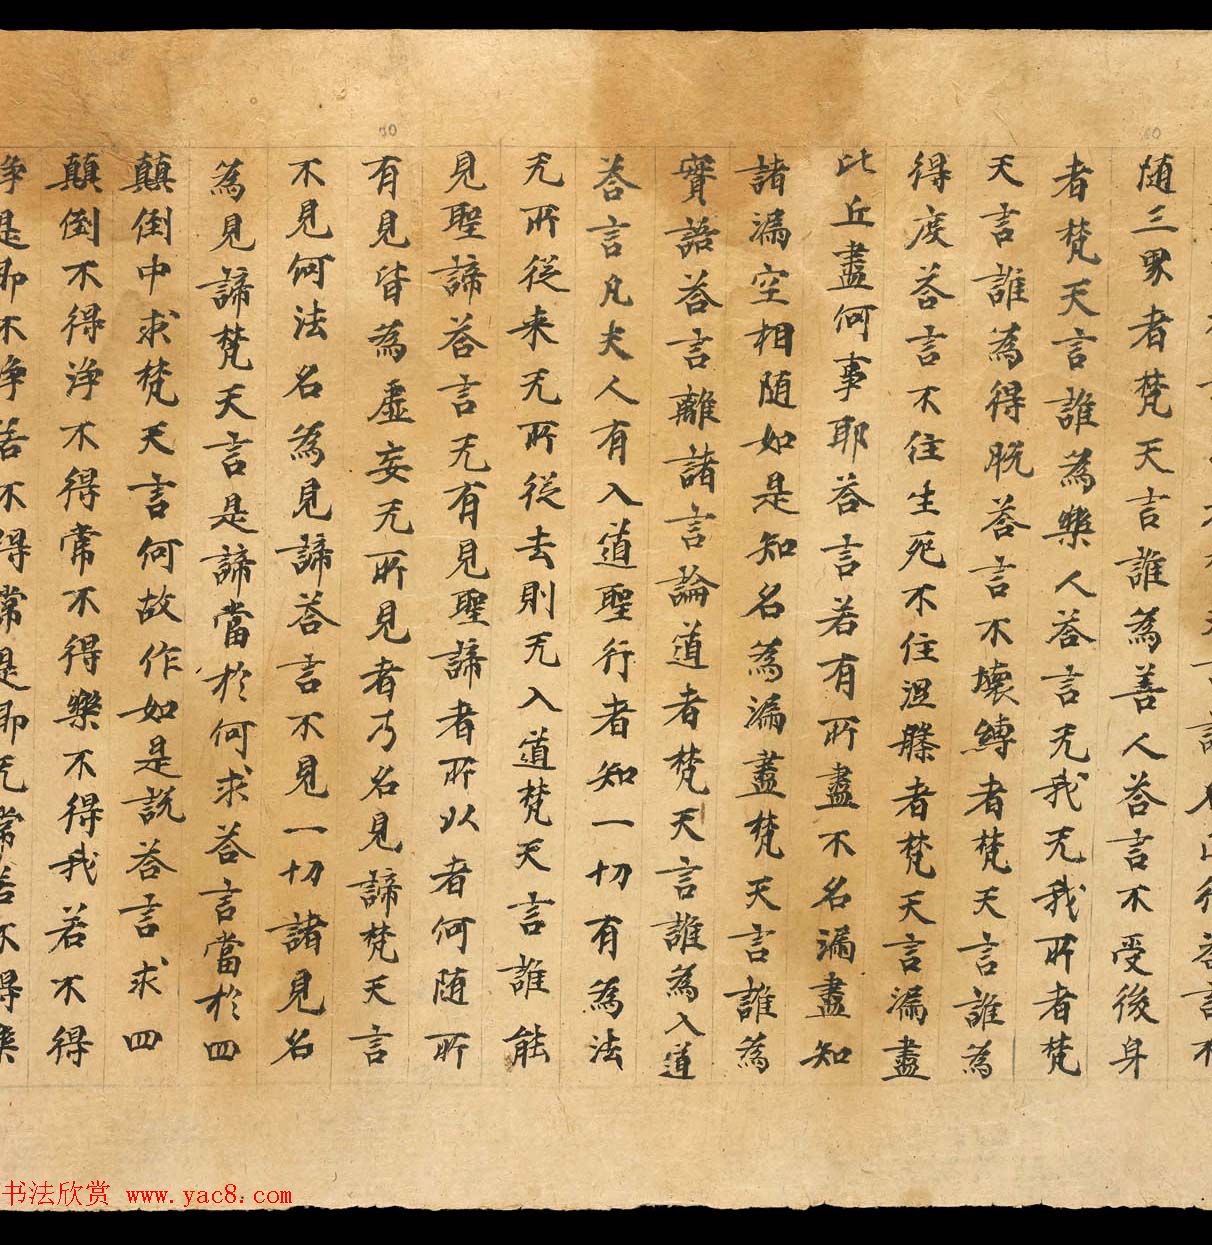 60
随三界者梵天言誰為善人荅言不受後身
者梵天言誰為樂人荅言无我无我所者梵
天言誰為得脱荅言不壞縛者梵天言誰為
得度荅言不住生死不住涅槃者梵天言漏盡
比丘盡何事耶荅言若有所盡不名漏盡知
諸漏空相随如是知名為漏盡梵天言誰為
實語荅言離諸言論道者梵天言誰為入道
荅言凡夫人有入道聖行者知一切有為法
无所從来无所從去則无入道梵天言誰能
見聖諦荅言无有見聖諦者所以者何随所
70
有見皆為虛妄无所見者乃名見諦梵天言
不見何法名為見諦荅言不見一切諸見名
為見諦梵天言是諦當於何求荅言當於四
顛倒中求梵天言何故作如是説荅言求四
顛倒不得淨不得常不得樂不得我若不得
淨是即不淨若不得常是即无常若不得樂
书法欣赏 www.yac8.com